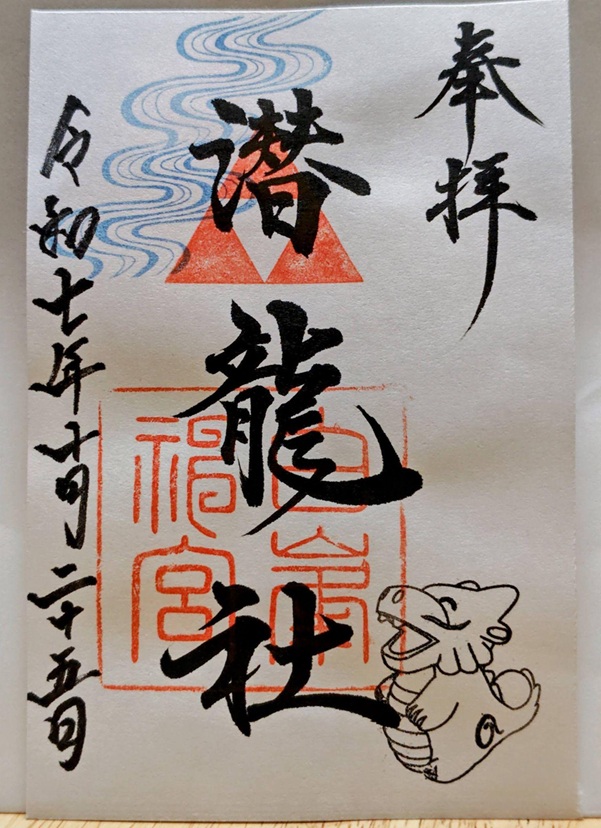 奉拝
潜龍社
白峯神宮
令和七年十月二十五日